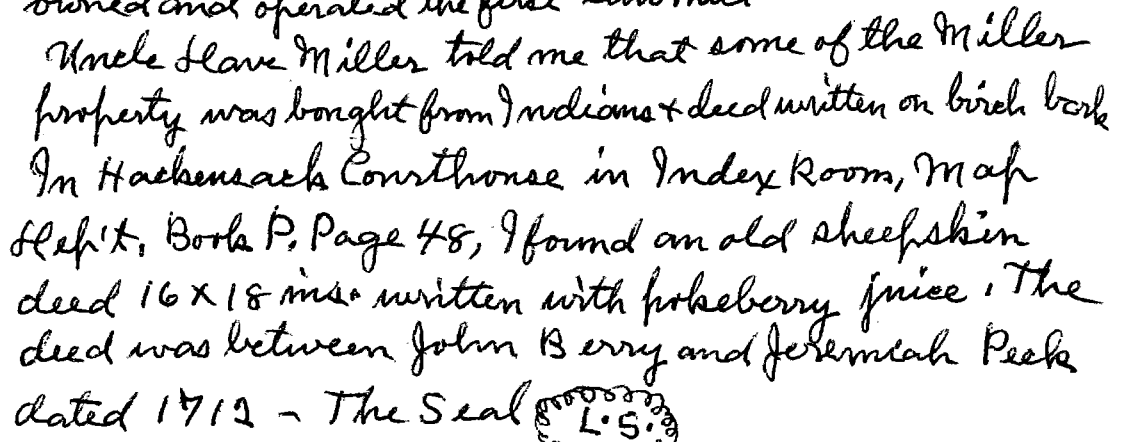 owned and operated the first
Uncle Dave Miller told me that some of the Miller
property was bought from Indians & deed written on birch bark
In Hackensack Courthouse in Index Room, Map
Dep't, Book P. Page 48, I found an old sheepskin
deed 16 X 18 ins. written with pokeberry juice. The
deed was between John Berry and Jeremiah Peek
dated 1712 - The Seal L.S.